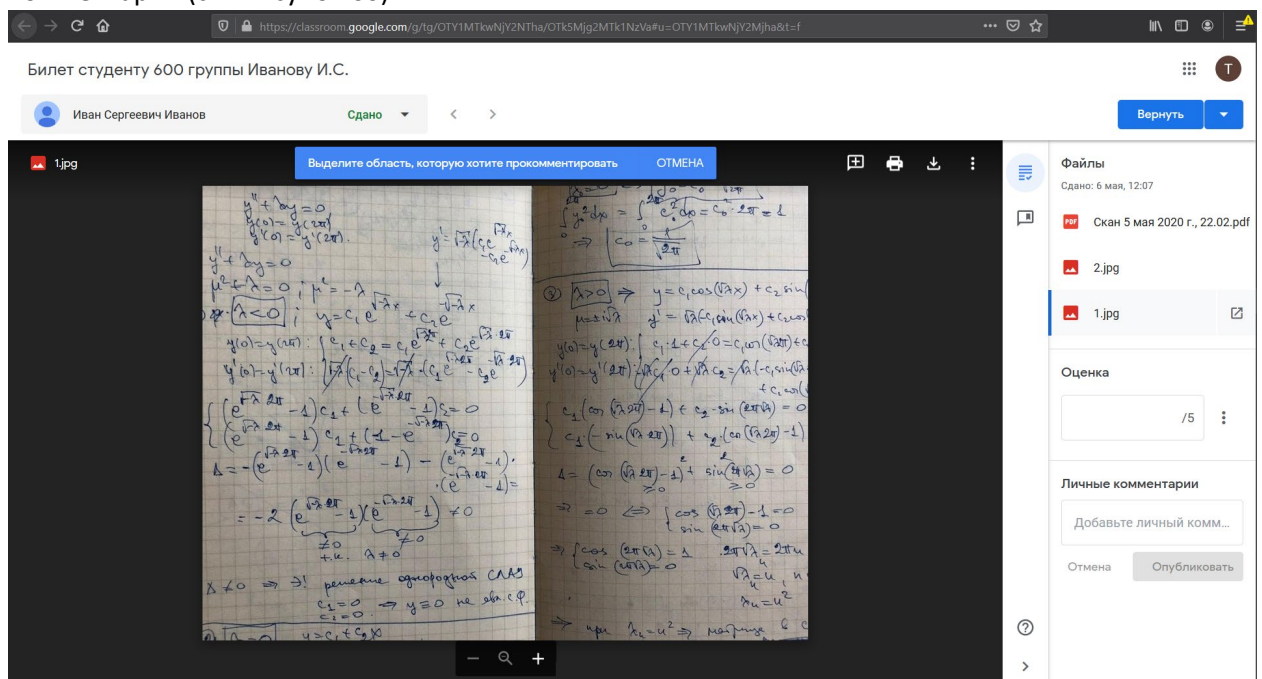 https://classroom.google.com/g/tg/OTY1MTkwNjY2NTha/OTk5Mjg2MTk1NzVa#u=OTY1MTkwNjY2Mjha&t=f
Билет студенту 600 группы Иванову И.С.
T
Иван Сергеевич Иванов
Сдано
Вернуть
1.jpg
Выделите область, которую хотите прокомментировать
ОТМЕНА
y'' + λy = 0
y(0) = y(2π)
y'(0) = y'(2π).
y'' + λy = 0
μ² + λ = 0 ; μ² = -λ
λ < 0 ; y = c₁e^{√-λ x} + c₂e^{-√-λ x}
y(0) = y(2π): c₁ + c₂ = c₁e^{√-λ 2π} + c₂e^{-√-λ 2π}
y'(0) = y'(2π): √-λ (c₁ - c₂) = √-λ (c₁e^{√-λ 2π} - c₂e^{-√-λ 2π})
(e^{√-λ 2π} - 1)c₁ + (e^{-√-λ 2π} - 1)c₂ = 0
(e^{√-λ 2π} - 1)c₁ + (1 - e^{-√-λ 2π})c₂ = 0
Δ = -(e^{√-λ 2π} - 1)(e^{-√-λ 2π} - 1) - (e^{√-λ 2π} - 1)·
·(e^{-√-λ 2π} - 1) =
= -2 (e^{√-λ 2π} - 1)(e^{-√-λ 2π} - 1) ≠ 0
≠0 ≠0
т.к. λ ≠ 0
Δ ≠ 0 ⇒ ∃! решение однородной СЛАУ
c₁ = 0
c₂ = 0 ⇒ y ≡ 0 не явл. с.ф.
λ = 0 y = c₁ + c₂x
∫ y₀² dx = ∫ c₀² dx = c₀² · 2π = 1
⇒ c₀ = 1/√2π
③ λ>0 ⇒ y = c₁cos(√λx) + c₂sin(
μ = ±i√λ y' = √λ(-c₁sin(√λx) + c₂cos
y(0) = y(2π): c₁·1 + c₂·0 = c₁cos(√λ2π) + c
y'(0) = y'(2π): √λc₁·0 + √λc₂ = √λ(-c₁sin(√λ
+ c₂cos(
c₁(cos(√λ2π) - 1) + c₂·sin(2π√λ) = 0
c₁·(-sin(√λ2π)) + c₂·(cos(√λ2π) - 1)
Δ = (cos(√λ2π) - 1)² + sin²(2π√λ) = 0
≥0 ≥0
⇒ =0 ⇔ cos(√λ2π) - 1 = 0
sin(2π√λ) = 0
⇒ cos(2π√λ) = 1 2π√λ = 2πn
sin(2π√λ) = 0 √λₙ = n, n
λₙ = n²
⇒ при λₙ = n² ⇒ матрица в с
Файлы
Сдано: 6 мая, 12:07
PDF Скан 5 мая 2020 г., 22.02.pdf
2.jpg
1.jpg
Оценка
/5
Личные комментарии
Добавьте личный комм...
Отмена
Опубликовать